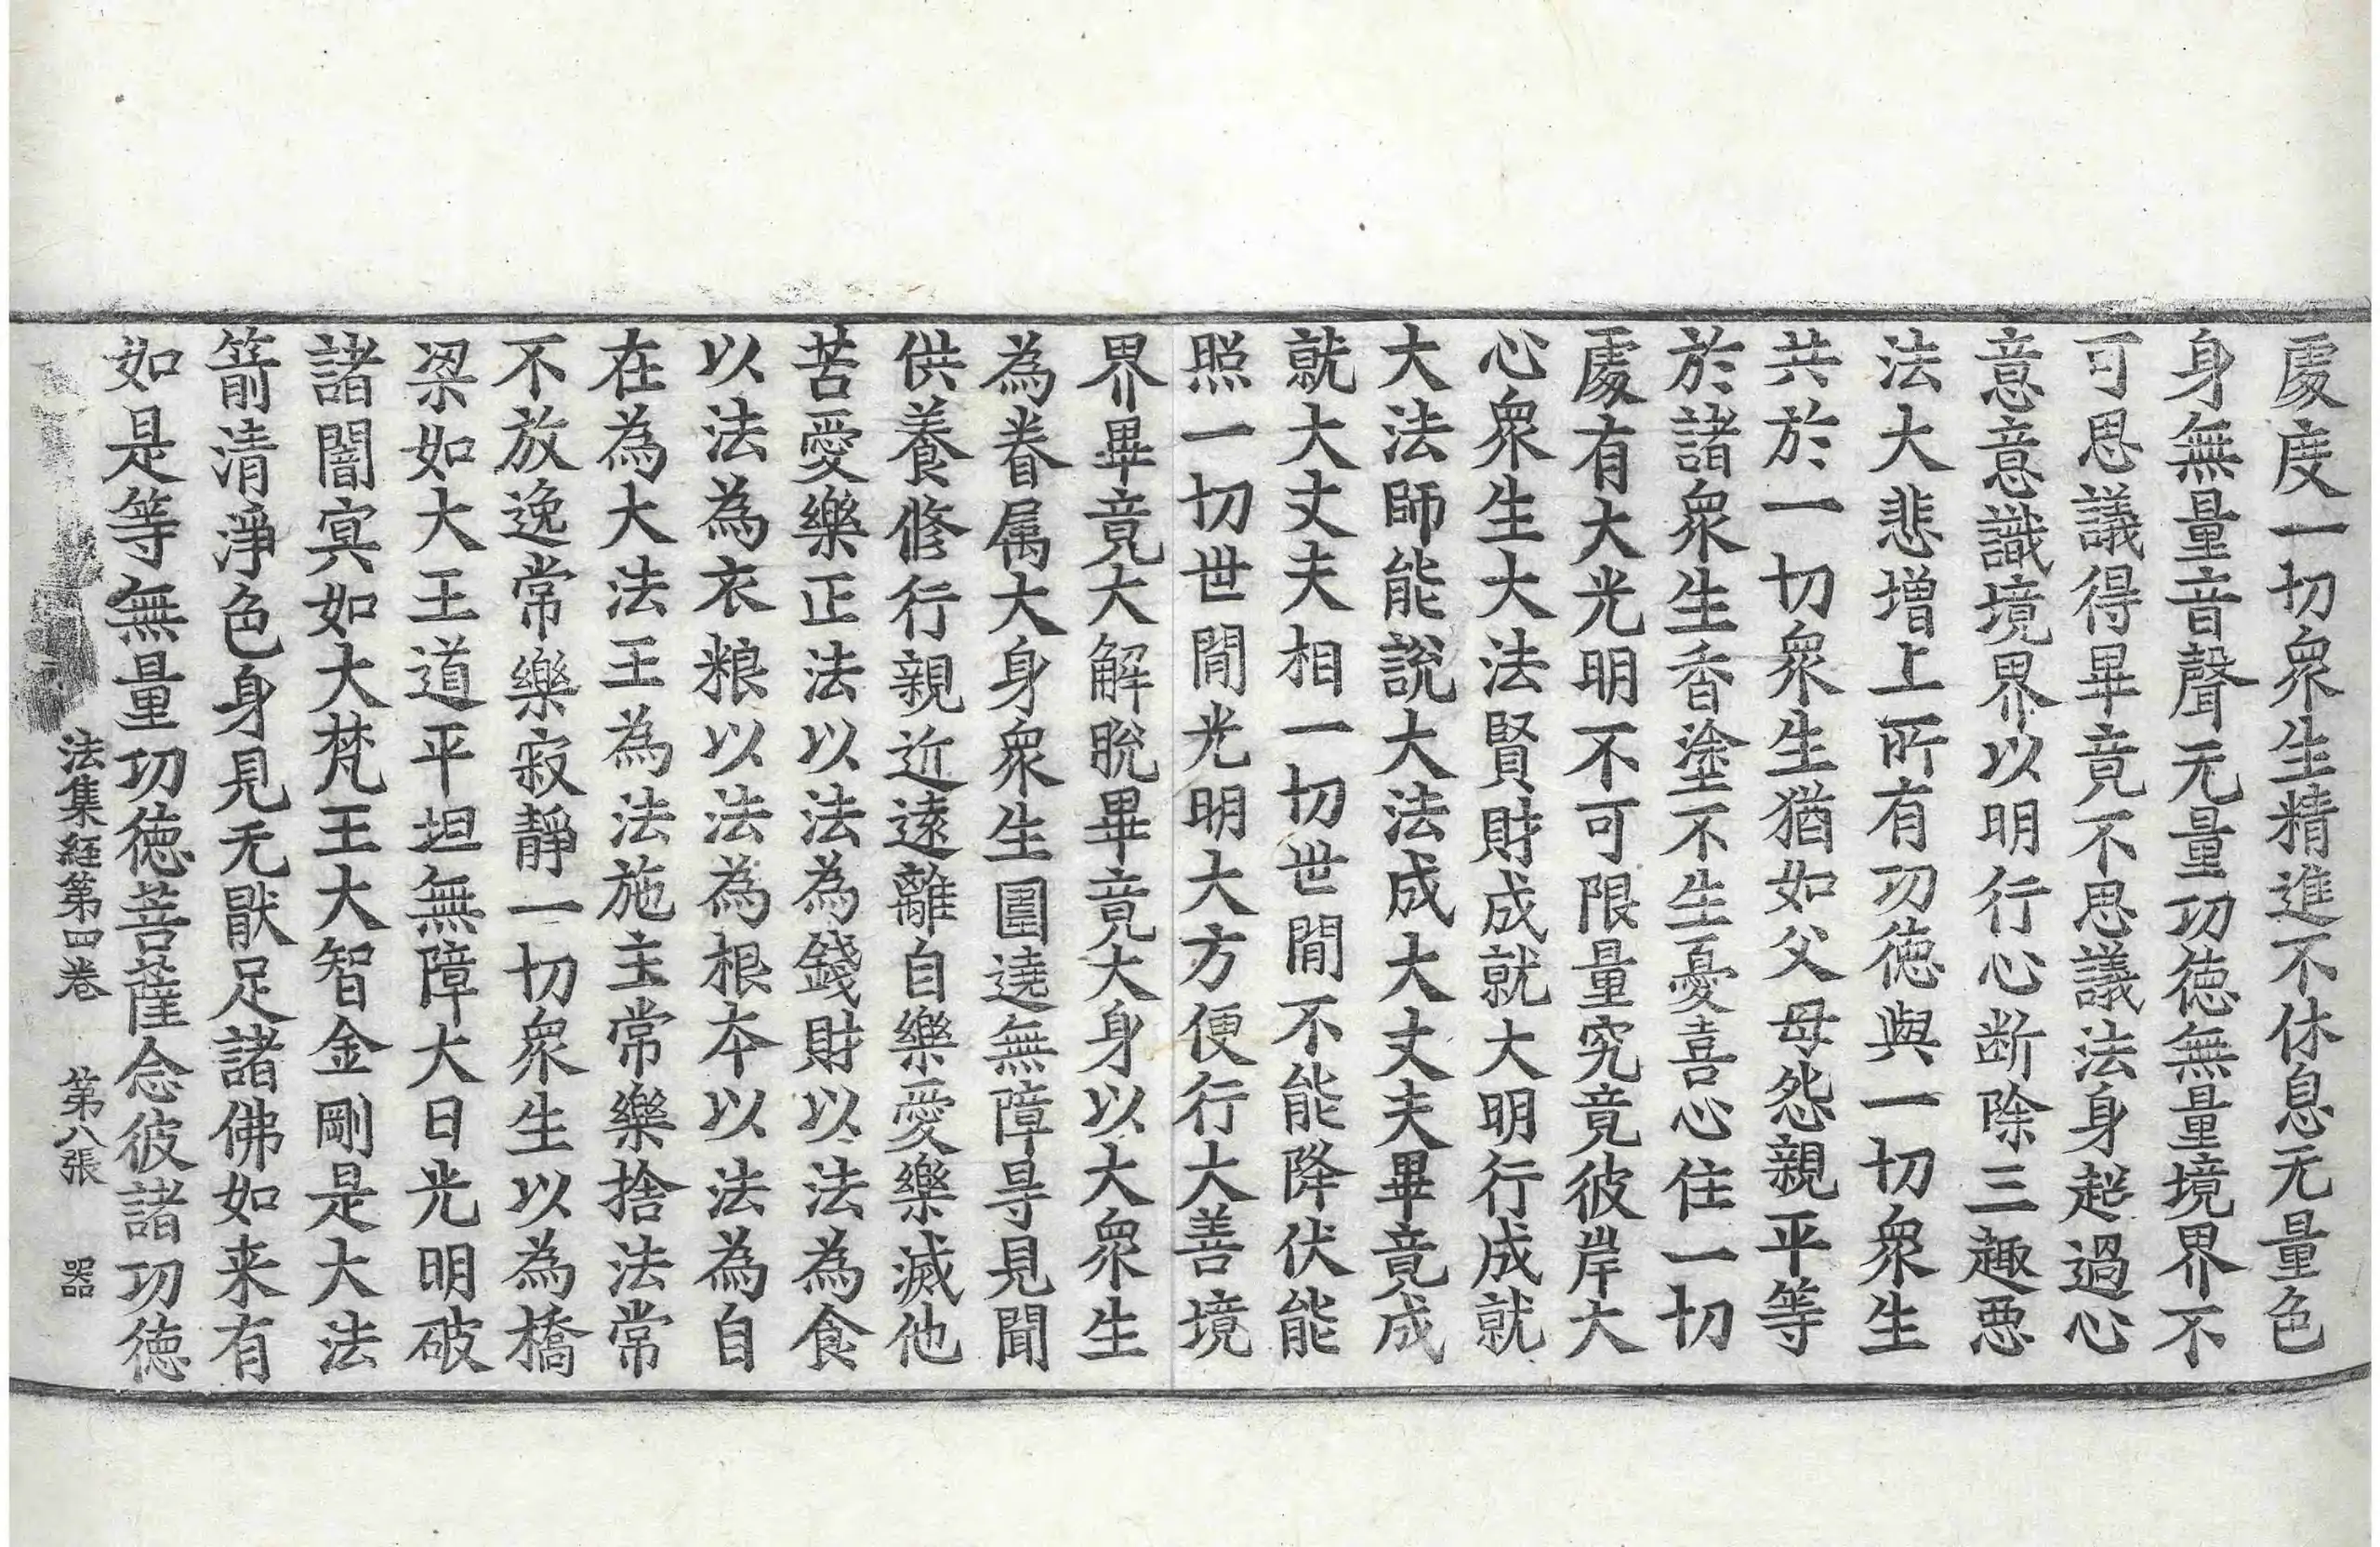 處度一切衆生精進不休息无量色
身無量音聲无量功徳無量境界不
可思議得畢竟不思議法身超過心
意意識境界以明行心断除三趣悪
法大悲增上所有功徳與一切衆生
共於一切衆生猶如父母怨親平等
於諸衆生香塗不生憂喜心住一切
處有大光明不可限量究竟彼岸大
心衆生大法賢財成就大明行成就
大法師能說大法成大丈夫畢竟成
就大丈夫相一切世閒不能降伏能
照一切世閒光明大方便行大善境
界畢竟大解脫畢竟大身以大衆生
為眷属大身衆生圍遶無障㝵見聞
供養修行親近遠離自樂愛樂滅他
苦愛樂正法以法為錢財以法為食
以法為衣粮以法為根本以法為自
在為大法王為法施主常樂捨法常
不放逸常樂寂靜一切衆生以為橋
梁如大王道平坦無障大日光明破
諸闇㝠如大梵王大智金剛是大法
箭清淨色身見无猒足諸佛如来有
如是等無量功徳菩薩念彼諸功徳
法集經第四卷 第八張 器